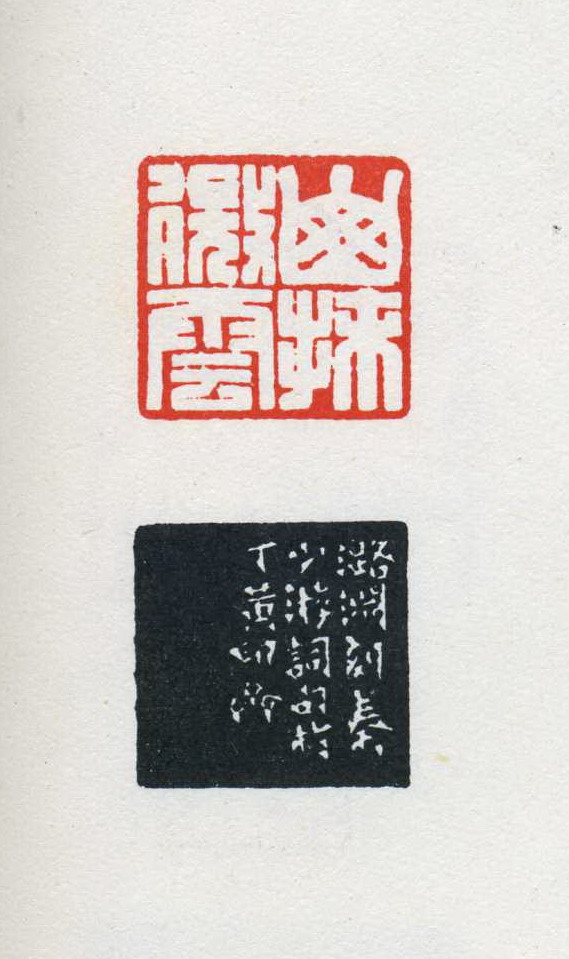 山抹
微雲
潞淵刻秦
少游詞句於
丁黃印